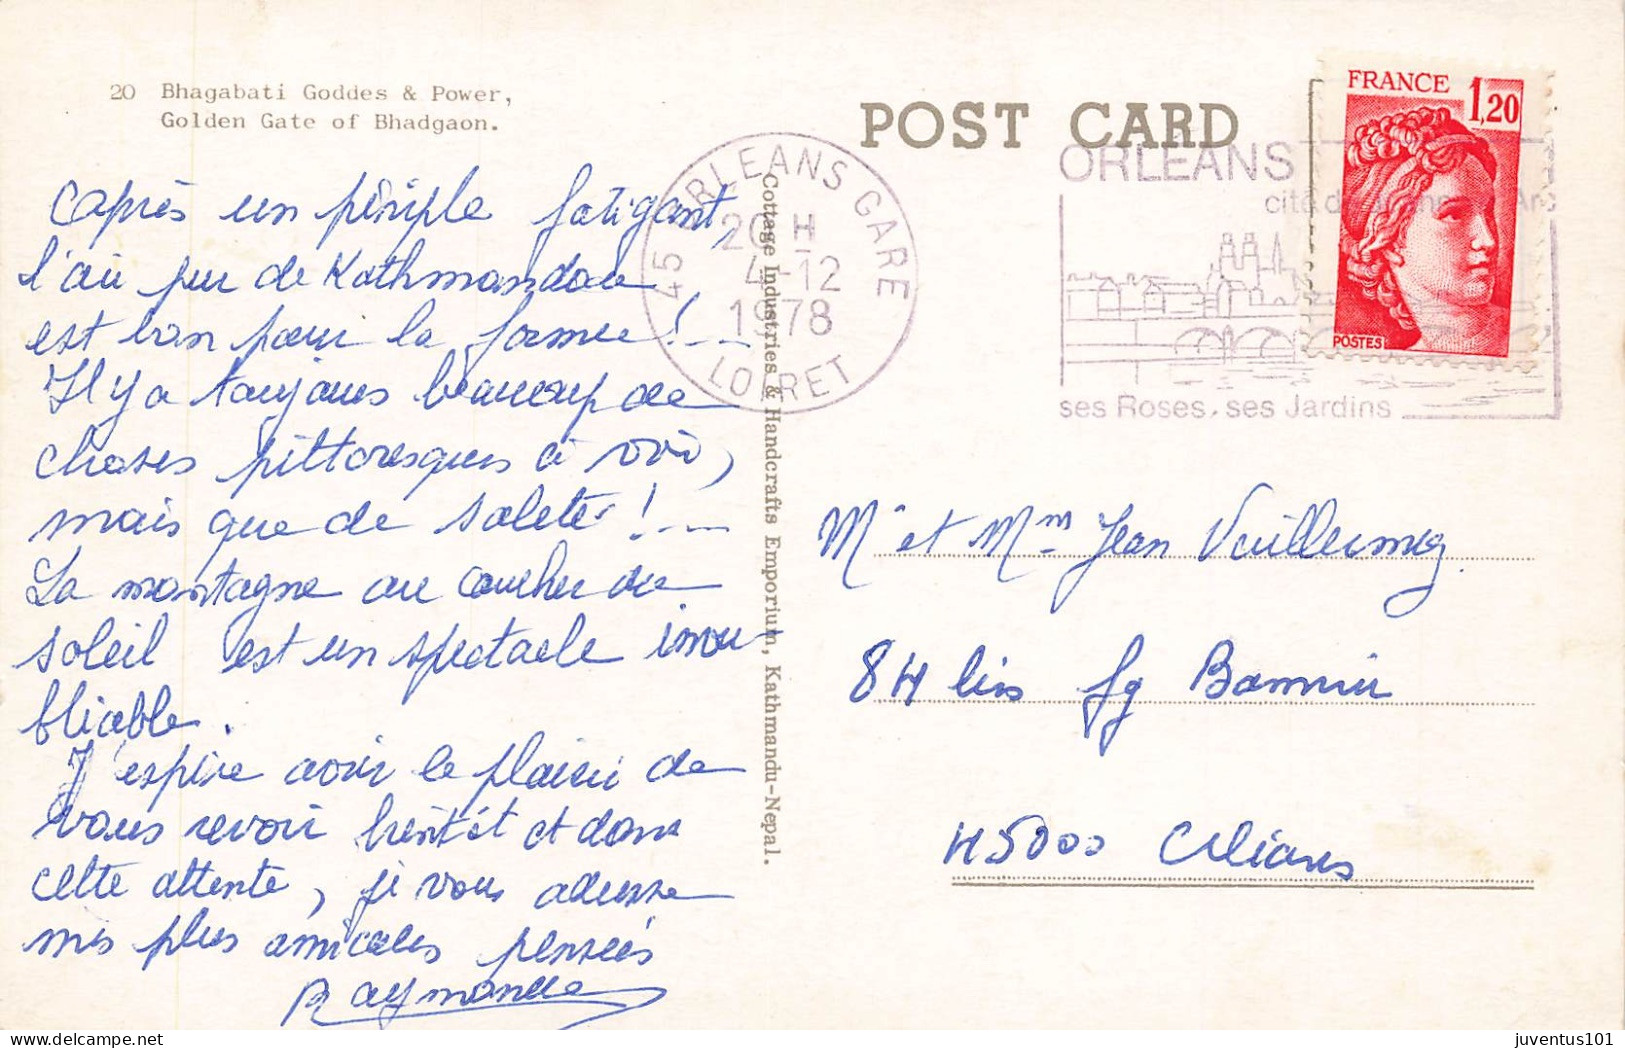 20 Bhagabati Goddes & Power,
Golden Gate of Bhadgaon.
POST CARD
Après un périple fatigant,
l'air pur de Kathmandou
est bon pour la forme !...
Il y a toujours beaucoup de
choses pittoresques à voir,
mais que de saletés !...
La montagne au coucher du
soleil est un spectacle inou
bliable.
J'espère avoir le plaisir de
vous revoir bientôt et dans
cette attente, je vous adresse
mes plus amicales pensées
Raymonde
Cottage Industries & Handcrafts Emporium, Kathmandu-Nepal.
45 ORLEANS GARE
20 H
4-12
1978
LOIRET
ORLÉANS
cité de
ses Roses, ses Jardins
FRANCE
1,20
POSTES
Mr et Mme Jean
84 bis fg Bannier
45000 Orléans
juventus101